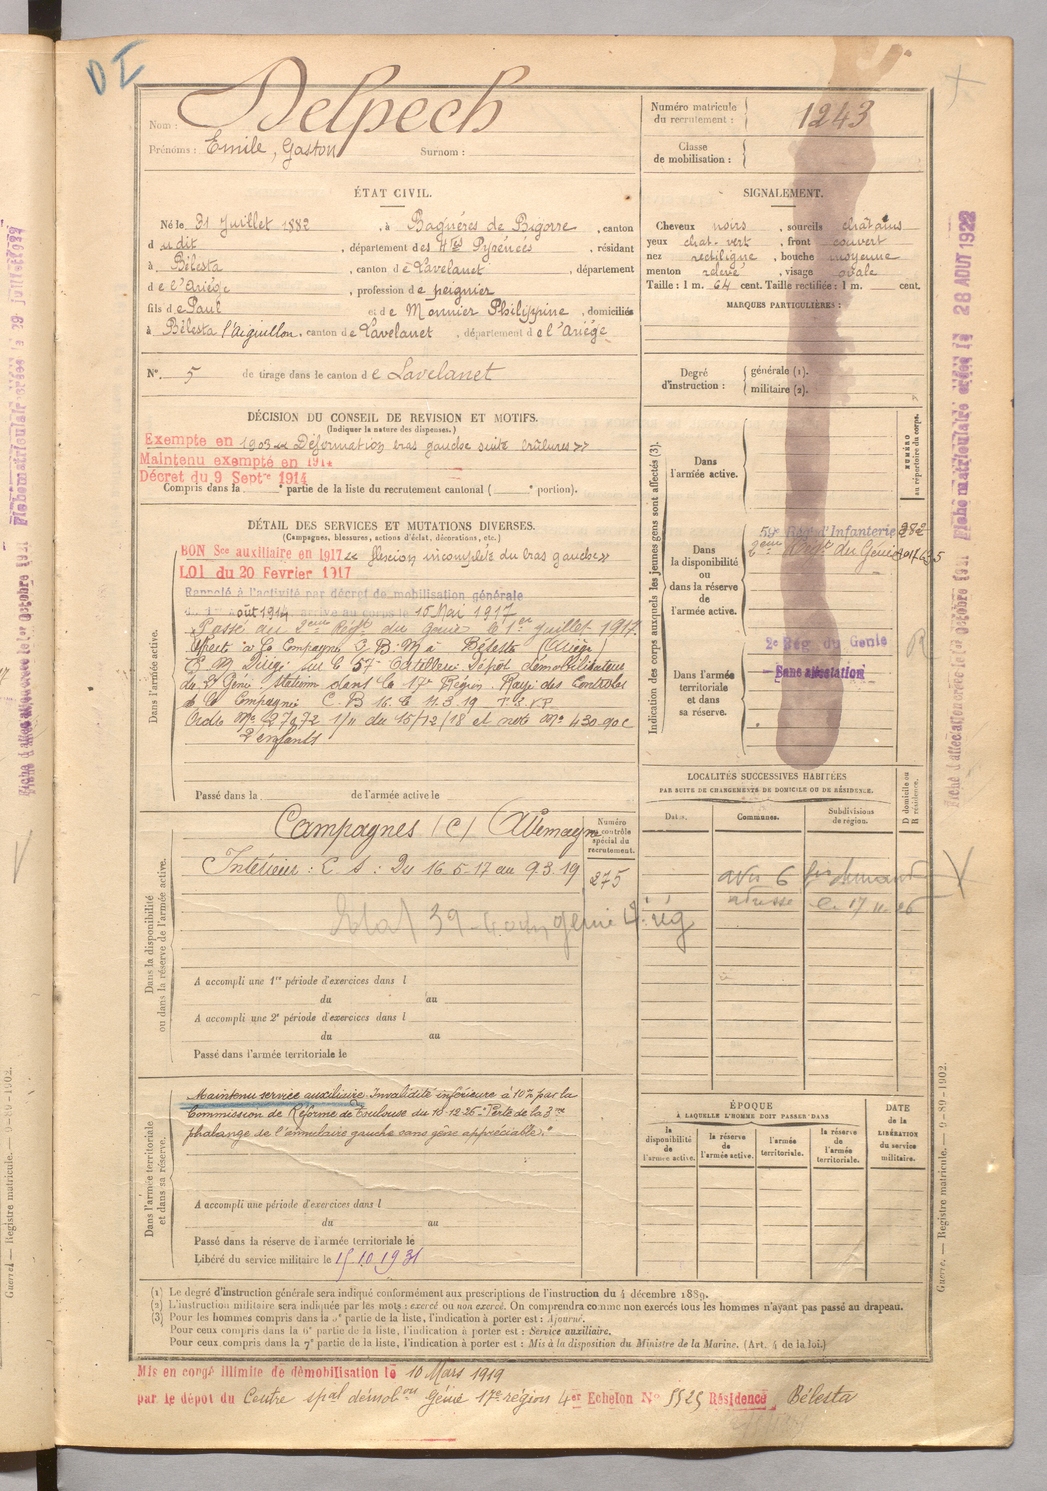 D I
Nom : Delpech
Prénoms : Emile, Gaston Surnom :
Numéro matricule du recrutement : 1243
Classe de mobilisation :
ÉTAT CIVIL.
Né le 31 Juillet 1882, à Bagnères de Bigorre, canton
dudit, département des Htes Pyrénées, résidant
à Bélesta, canton de Lavelanet, département
de l'Ariège, profession de peignier
fils de Paul et de Monnier Philippine, domiciliés
à Bélesta l'Aiguillon, canton de Lavelanet, département de l'Ariège
N° 5 de tirage dans le canton de Lavelanet
SIGNALEMENT.
Cheveux noirs, sourcils châtains
yeux chat. vert, front couvert
nez rectiligne, bouche moyenne
menton relevé, visage ovale
Taille : 1 m. 64 cent. Taille rectifiée : 1 m. cent.
MARQUES PARTICULIÈRES :
Degré d'instruction : générale (1). militaire (2).
DÉCISION DU CONSEIL DE REVISION ET MOTIFS.
(Indiquer la nature des dispenses.)
Exempté en 1903 « Déformation bras gauche suite brûlures »
Maintenu exempté en 1914
Décret du 9 Septre 1914
Compris dans la e partie de la liste du recrutement cantonal ( e portion).
DÉTAIL DES SERVICES ET MUTATIONS DIVERSES.
(Campagnes, blessures, actions d'éclat, décorations, etc.)
Dans l'armée active.
BON Sce auxiliaire en 1917 « flexion incomplète du bras gauche »
LOI du 20 Fevrier 1917
Rappelé à l'activité par décret de mobilisation générale
du 1er août 1914 arrivé au corps le 15 Mai 1917
Passé au 2ème Régt du Génie le 1er Juillet 1917.
Affecté à la Compagnie C. B. M à Bélesta (Ariège)
E. M Dirigé sur le 57e Artillerie Dépôt démobilisateur
du 2 Génie stationné dans la 17e Région. Rayé des Contrôles
de la Compagnie C. B 16 le 11.3.19
Ordre No 27472 1/11 du 15/12/18 et note No 430.90 C
2 enfants
Passé dans la de l'armée active le
Indication des corps auxquels les jeunes gens sont affectés (3).
NUMÉRO au répertoire du corps.
Dans l'armée active.
Dans la disponibilité ou dans la réserve de l'armée active.
59e Rég. d'Infanterie 282
2ème Régt du Génie
Dans l'armée territoriale et dans sa réserve.
2e Rég. du Génie
Sans affectation
LOCALITÉS SUCCESSIVES HABITÉES
PAR SUITE DE CHANGEMENTS DE DOMICILE OU DE RÉSIDENCE.
Dates. Communes. Subdivisions de région. D domicile ou R résidence.
Dans la disponibilité ou dans la réserve de l'armée active.
Campagnes (C) Allemagne
Numéro au contrôle spécial du recrutement.
Intérieur : C S : Du 16.5.17 au 9.3.19
275
A accompli une 1re période d'exercices dans l
du au
A accompli une 2e période d'exercices dans l
du au
Passé dans l'armée territoriale le
Dans l'armée territoriale et dans sa réserve.
Maintenu service auxiliaire. Invalidité inférieure à 10% par la
Commission de Réforme de Toulouse du 10-12-26. "Perte de la 3me
phalange de l'annulaire gauche sans gêne appréciable."
A accompli une période d'exercices dans l
du au
Passé dans la réserve de l'armée territoriale le
Libéré du service militaire le 15.10.1931
ÉPOQUE
À LAQUELLE L'HOMME DOIT PASSER DANS
la disponibilité de l'armée active. la réserve de l'armée active. l'armée territoriale. la réserve de l'armée territoriale.
DATE de la LIBÉRATION du service militaire.
(1) Le degré d'instruction générale sera indiqué conformément aux prescriptions de l'instruction du 4 décembre 1889.
(2) L'instruction militaire sera indiquée par les mots : exercé ou non exercé. On comprendra comme non exercés tous les hommes n'ayant pas passé au drapeau.
(3) Pour les hommes compris dans la 5e partie de la liste, l'indication à porter est : Ajourné.
Pour ceux compris dans la 6e partie de la liste, l'indication à porter est : Service auxiliaire.
Pour ceux compris dans la 7e partie de la liste, l'indication à porter est : Mis à la disposition du Ministre de la Marine. (Art. 4 de la loi.)
Mis en congé illimité de démobilisation le 10 Mars 1919
par le dépôt du Centre spal démobon Génie 17e région 4er Echelon N° 5525 Résidence Bélesta
Guerre. — Registre matricule. — 9-89-1902.
Fiche matriculaire créée le 28 AOUT 1922